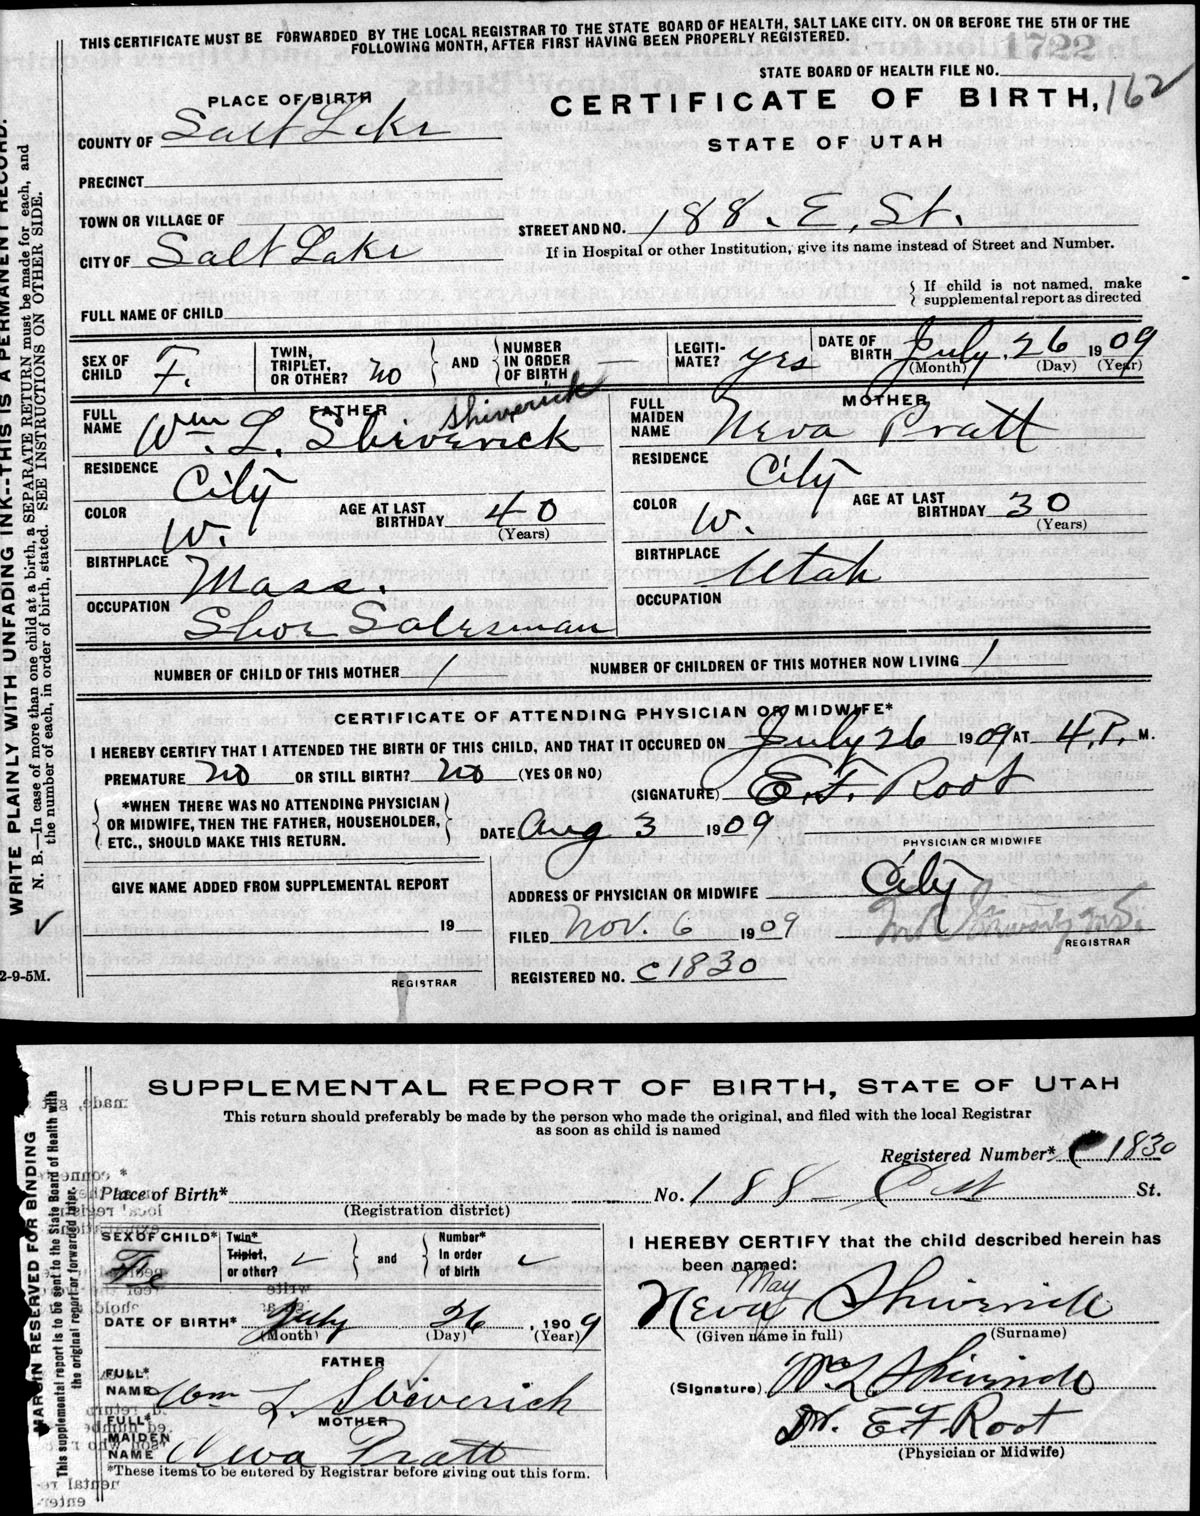 THIS CERTIFICATE MUST BE FORWARDED BY THE LOCAL REGISTRAR TO THE STATE BOARD OF HEALTH, SALT LAKE CITY. ON OR BEFORE THE 5TH OF THE
FOLLOWING MONTH, AFTER FIRST HAVING BEEN PROPERLY REGISTERED.
STATE BOARD OF HEALTH FILE NO.
162
CERTIFICATE OF BIRTH,
STATE OF UTAH
PLACE OF BIRTH
COUNTY OF Salt Lake
PRECINCT
TOWN OR VILLAGE OF
CITY OF Salt Lake
STREET AND NO. 188. E, St.
If in Hospital or other Institution, give its name instead of Street and Number.
FULL NAME OF CHILD
If child is not named, make
supplemental report as directed
SEX OF CHILD F.
TWIN, TRIPLET, OR OTHER? no
AND
NUMBER IN ORDER OF BIRTH —
LEGITI- MATE? yes
DATE OF BIRTH July. 26 1909
(Month) (Day) (Year)
FATHER
Shiverick
FULL NAME Wm. L. Shiverick
RESIDENCE City
COLOR W.
AGE AT LAST BIRTHDAY 40
(Years)
BIRTHPLACE Mass.
OCCUPATION Shoe Salesman
MOTHER
FULL MAIDEN NAME Neva Pratt
RESIDENCE City
COLOR W.
AGE AT LAST BIRTHDAY 30
(Years)
BIRTHPLACE Utah
OCCUPATION
NUMBER OF CHILD OF THIS MOTHER 1
NUMBER OF CHILDREN OF THIS MOTHER NOW LIVING 1
CERTIFICATE OF ATTENDING PHYSICIAN OR MIDWIFE*
I HEREBY CERTIFY THAT I ATTENDED THE BIRTH OF THIS CHILD, AND THAT IT OCCURED ON July 26 1909 AT 4.P. M.
PREMATURE no OR STILL BIRTH? no (YES OR NO)
(SIGNATURE) E. F. Root
*WHEN THERE WAS NO ATTENDING PHYSICIAN
OR MIDWIFE, THEN THE FATHER, HOUSEHOLDER,
ETC., SHOULD MAKE THIS RETURN.
DATE Aug 3 1909
PHYSICIAN OR MIDWIFE
GIVE NAME ADDED FROM SUPPLEMENTAL REPORT
19
REGISTRAR
ADDRESS OF PHYSICIAN OR MIDWIFE City
FILED Nov. 6 1909
REGISTRAR
REGISTERED NO. C1830
WRITE PLAINLY WITH UNFADING INK--THIS IS A PERMANENT RECORD.
N. B.—In case of more than one child at a birth, a SEPARATE RETURN must be made for each, and
the number of each, in order of birth, stated. SEE INSTRUCTIONS ON OTHER SIDE.
2-9-5M.
SUPPLEMENTAL REPORT OF BIRTH, STATE OF UTAH
This return should preferably be made by the person who made the original, and filed with the local Registrar
as soon as child is named
Registered Number* C 1830
Place of Birth* No. 188 St.
(Registration district)
SEX OF CHILD* Fe
Twin* Triplet, or other?
and
Number* in order of birth
DATE OF BIRTH* July 26, 1909
(Month) (Day) (Year)
FATHER
FULL* NAME Wm L. Shiverich
MOTHER
FULL* MAIDEN NAME Neva Pratt
*These items to be entered by Registrar before giving out this form.
I HEREBY CERTIFY that the child described herein has
been named:
May
Neva Shiverick
(Given name in full) (Surname)
(Signature) Wm L Shiverick
Dr. E F Root
(Physician or Midwife)
MARGIN RESERVED FOR BINDING
This supplemental report is to be sent to the State Board of Health with
the original report or forwarded later.